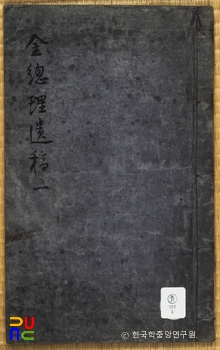 金總理遺稿 一
© 한국학중앙연구원